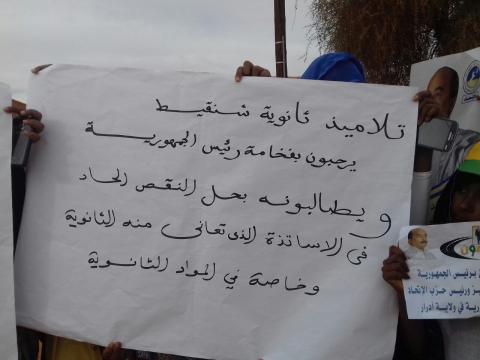 تلاميذ ثانوية شنقيط
يرحبون بفخامة رئيس الجمهورية
ويطالبونه بحل النقص الحاد
في الاساتذة الذى تعانى منه الثانوية
وخاصة في المواد الثانوية
برئيس الجمهورية
ورئيس حزب الإتحاد
في ولاية أدرار